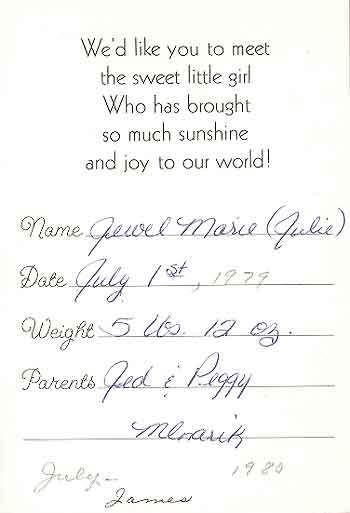 We'd like you to meet
the sweet little girl
Who has brought
so much sunshine
and joy to our world!
Name Jewel Marie (Julie)
Date July 1st, 1979
Weight 5 lbs. 12 oz.
Parents Jed & Peggy
Mlnarik
July - 1980
James